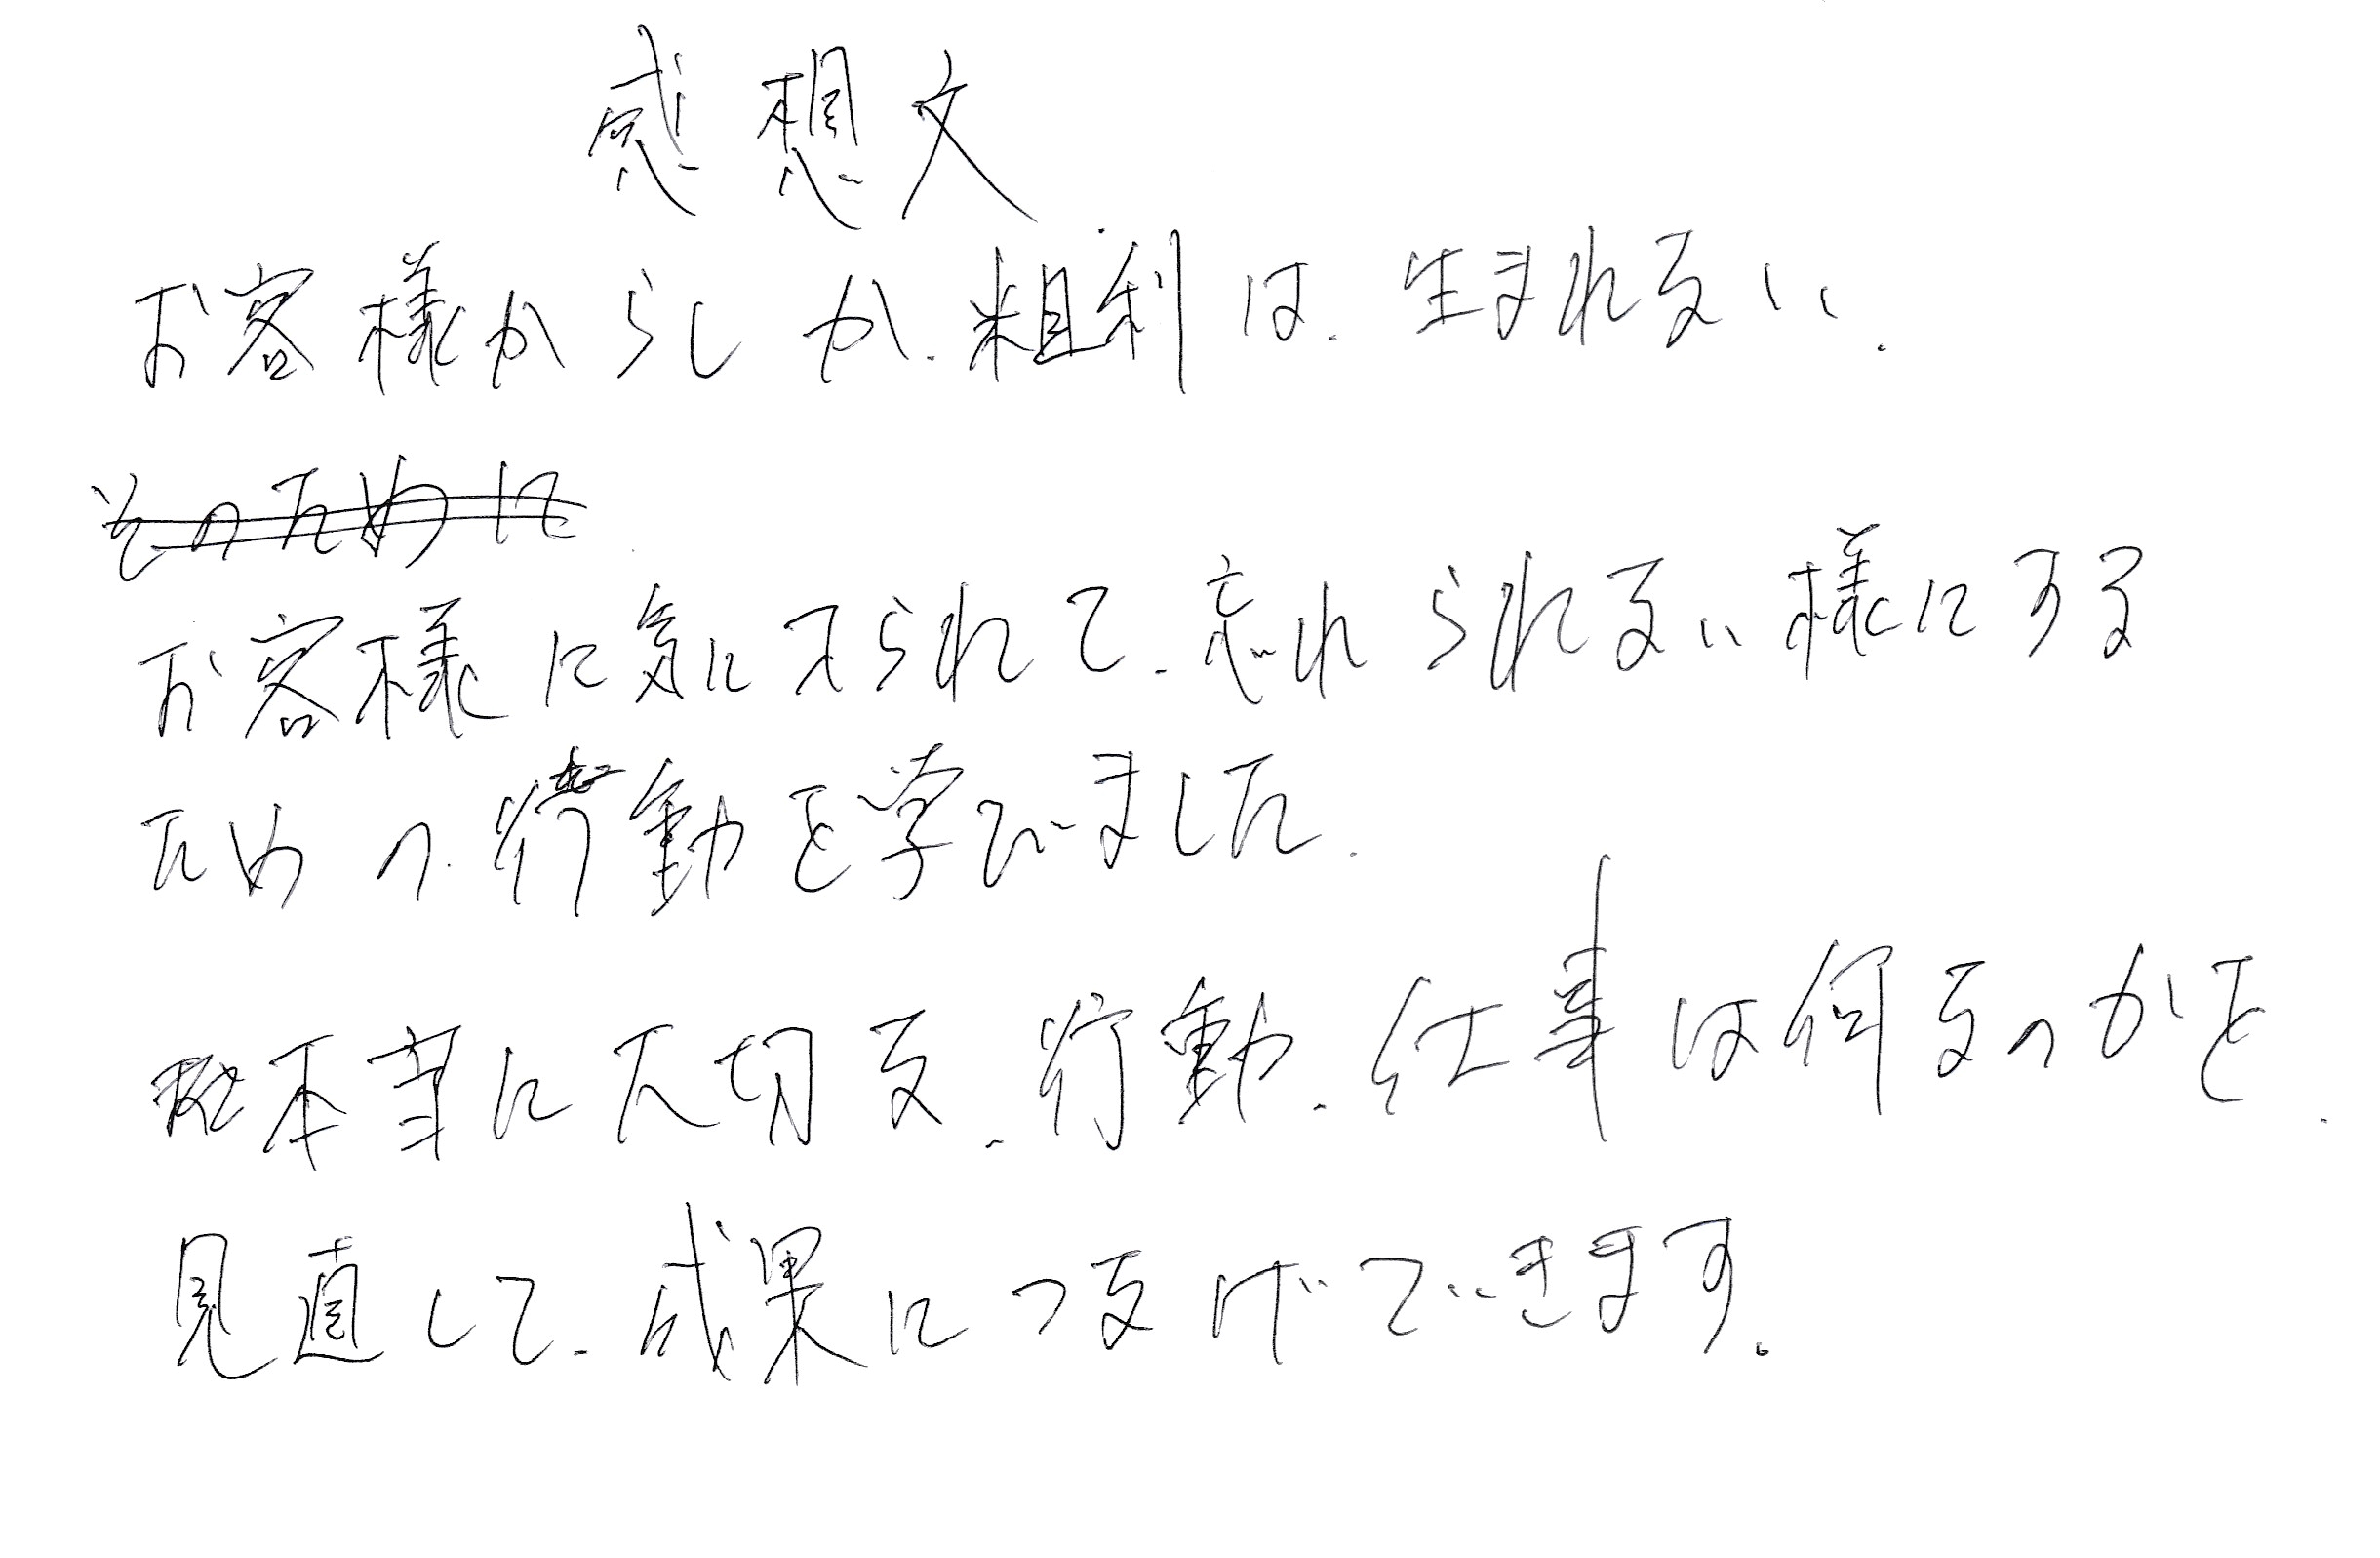 感想文
お客様からしか、粗利は、生まれない、
そのために
お客様に気に入られて、忘れられない様にする
ための、行動を学びました、
本当に大切な、行動、仕事は何なのかを、
見直して、成果につなげていきます。